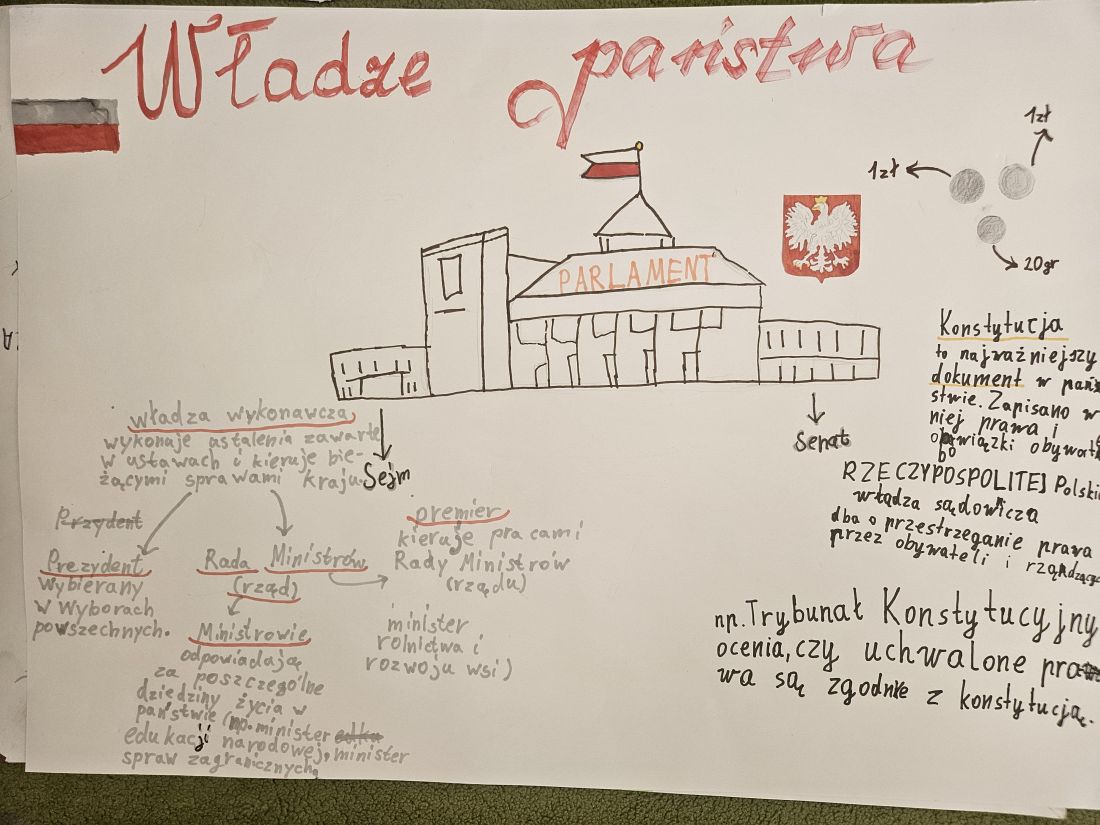 Władze państwa
1zł
1zł
20gr
PARLAMENT
Sejm
Senat
władza wykonawcza
wykonuje ustalenia zawarte
w ustawach i kieruje bie-
żącymi sprawami kraju.
Prezydent
Wybierany
w Wyborach
powszechnych.
Rada Ministrów
(rząd)
Ministrowie
odpowiadają
za poszczególne
dziedziny życia w
państwie (np. minister
edukacji narodowej, minister
spraw zagranicznych,
premier
kieruje pracami
Rady Ministrów
(rządu)
minister
rolnictwa i
rozwoju wsi)
Konstytucja
to najważniejszy
dokument w pań
stwie. Zapisano w
niej prawa i
RZECZYPOSPOLITEJ Polski
władza sądowicza
dba o przestrzeganie prawa
przez obywateli i
np. Trybunał Konstytucyjny
ocenia, czy uchwalone pra
wa są zgodne z konstytucją.